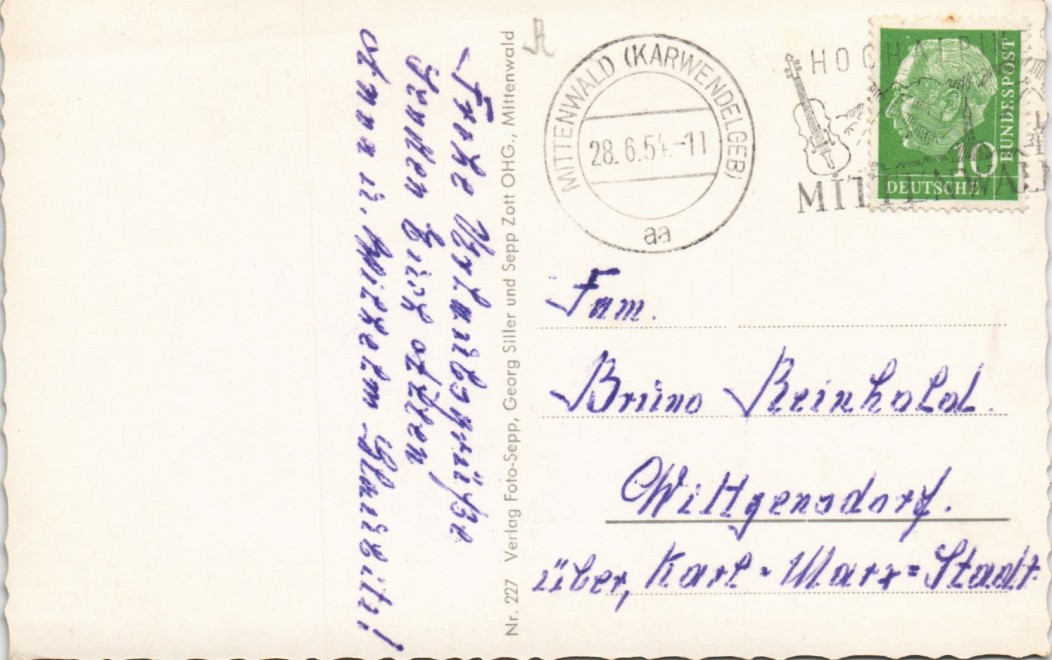 Frohe Urlaubsgrüße
senden Euch allen
Anna u. Wilhelm
Nr. 227 Verlag Foto-Sepp, Georg Siller und Sepp Zott OHG., Mittenwald
MITTENWALD (KARWENDELGEB)
28.6.54.-11
aa
MITTENWALD
10
DEUTSCHE
BUNDESPOST
Fam.
Bruno Reinhold.
Wittgensdorf.
über, Karl-Marx=Stadt